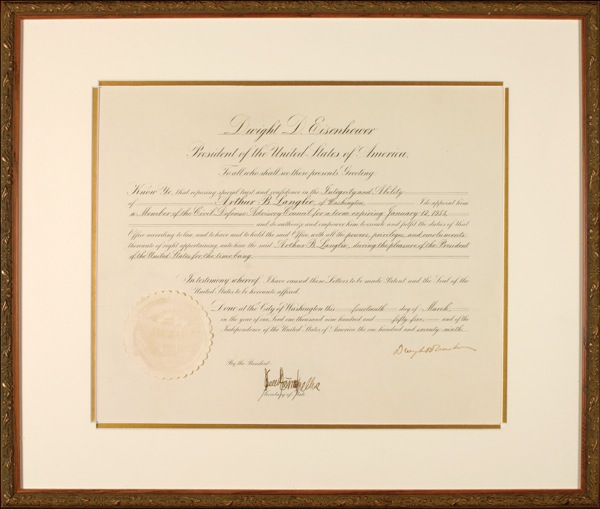 Dwight D. Eisenhower
President of the United States of America.
To all who shall see these presents, Greeting:
Know Ye, that reposing special trust and confidence in the Integrity and Ability
of Arthur B. Langlie, of Washington, I do appoint him
a Member of the Civil Defense Advisory Council for a term expiring January 12, 
and do authorize and empower him to execute and fulfil the duties of that
Office according to law, and to have and to hold the said Office, with all the powers, privileges, and emoluments
thereunto of right appertaining, unto him the said Arthur B. Langlie, during the pleasure of the President
of the United States for the time being.
In testimony whereof, I have caused these Letters to be made Patent and the Seal of the
United States to be hereunto affixed.
Done at the City of Washington this fourteenth day of March,
in the year of our Lord one thousand nine hundred and fifty-five, and of the
Independence of the United States of America the one hundred and seventy-ninth.
Dwight D Eisenhower
By the President:
Secretary of State